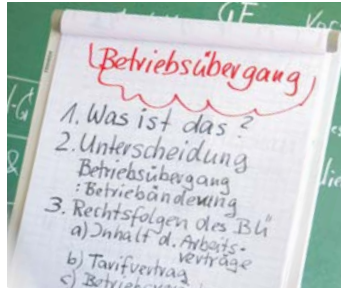 Betriebsübergang
1. Was ist das?
2. Unterscheidung
Betriebsübergang
: Betriebänderung
3. Rechtsfolgen des BÜ
a) Inhalt d. Arbeits-
verträge
b) Tarifvertrag